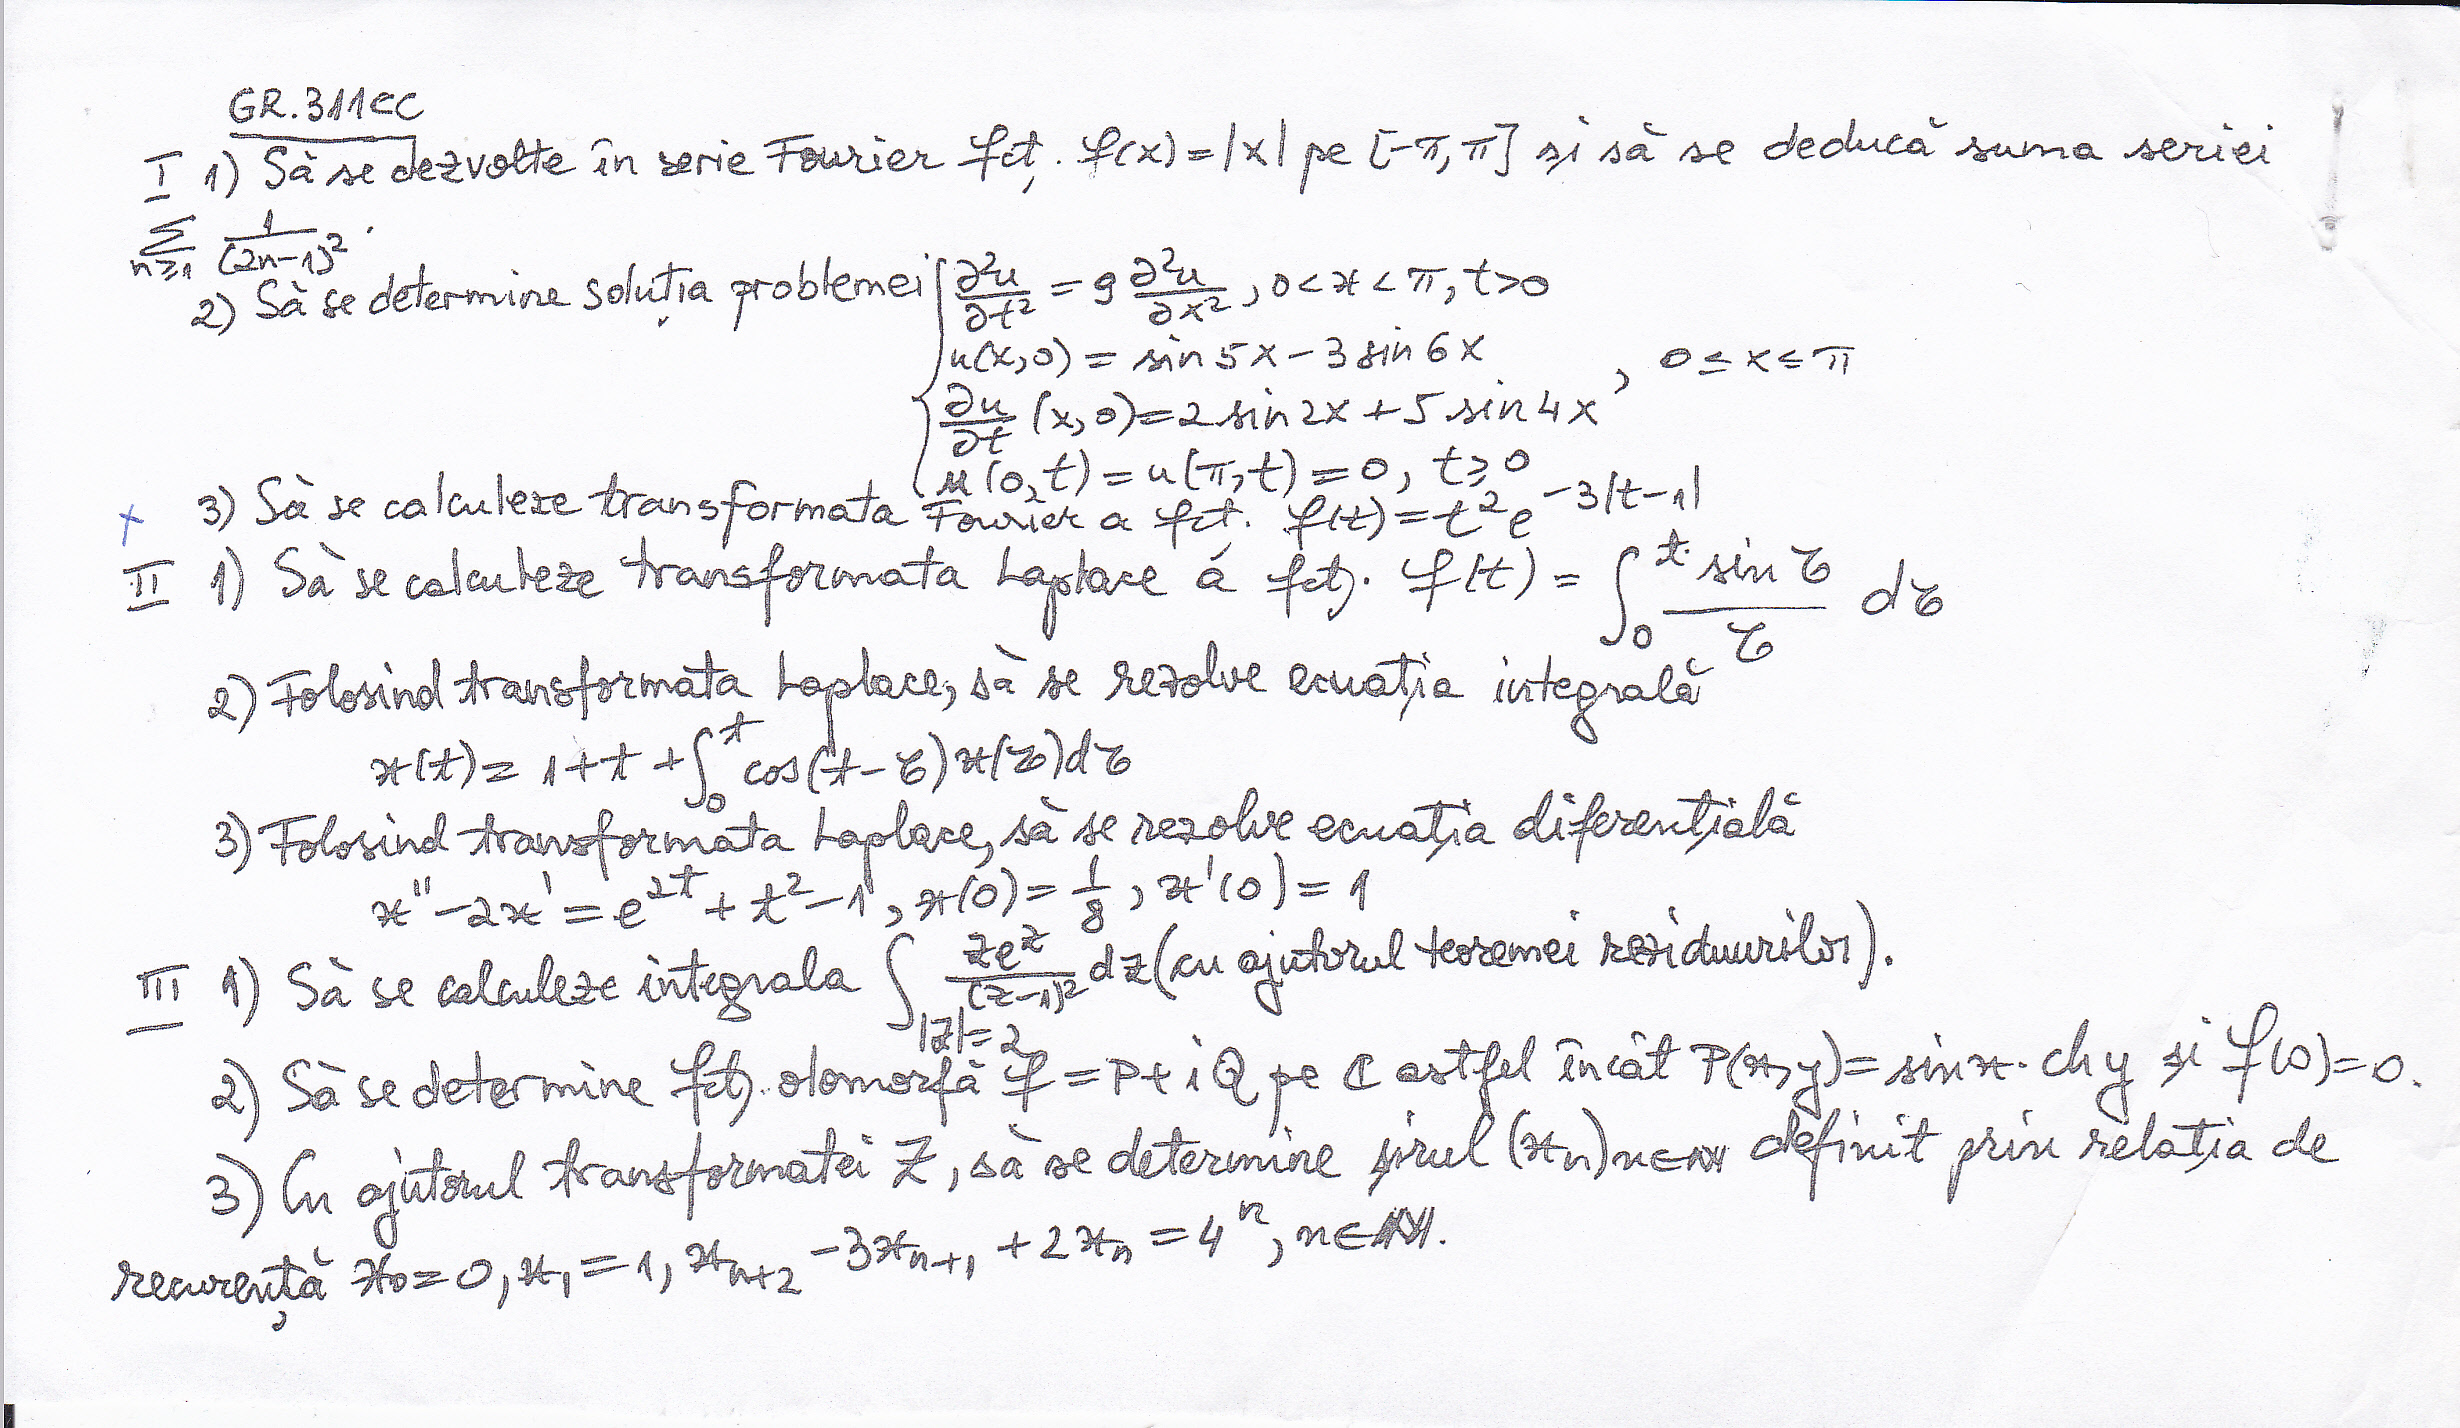 GR. 311CC
I 1) Să se dezvolte în serie Fourier fcţ. f(x) = |x| pe [-π, π] şi să se deducă suma seriei
∑_{n≥1} 1/(2n-1)^2.
2) Să se determine soluţia problemei { ∂²u/∂t² = 9 ∂²u/∂x², 0 < x < π, t > 0
u(x,0) = sin 5x - 3 sin 6x , 0 ≤ x ≤ π
∂u/∂t (x,0) = 2 sin 2x + 5 sin 4x
u(0,t) = u(π,t) = 0, t ≥ 0
+ 3) Să se calculeze transformata Fourier a fcţ. f(t) = t² e^{-3|t-1|}
II 1) Să se calculeze transformata Laplace a fcţ. f(t) = ∫_0^t (sin τ)/τ dτ
2) Folosind transformata Laplace, să se rezolve ecuaţia integrală
x(t) = 1 + t + ∫_0^t cos(t-τ) x(τ) dτ
3) Folosind transformata Laplace, să se rezolve ecuaţia diferenţială
x'' - 2x' = e^{2t} + t² - 1, x(0) = 1/8, x'(0) = 1
III 1) Să se calculeze integrala ∫_{|z|=2} ze^z/(z-1)² dz (cu ajutorul teoremei reziduurilor).
2) Să se determine fcţ. olomorfă f = P + iQ pe ℂ astfel încât P(x,y) = sin x · ch y şi f(0) = 0.
3) Cu ajutorul transformatei Z, să se determine şirul (x_n)_{n∈ℕ} definit prin relaţia de
recurenţă x_0 = 0, x_1 = 1, x_{n+2} - 3x_{n+1} + 2x_n = 4^n, n ∈ ℕ.